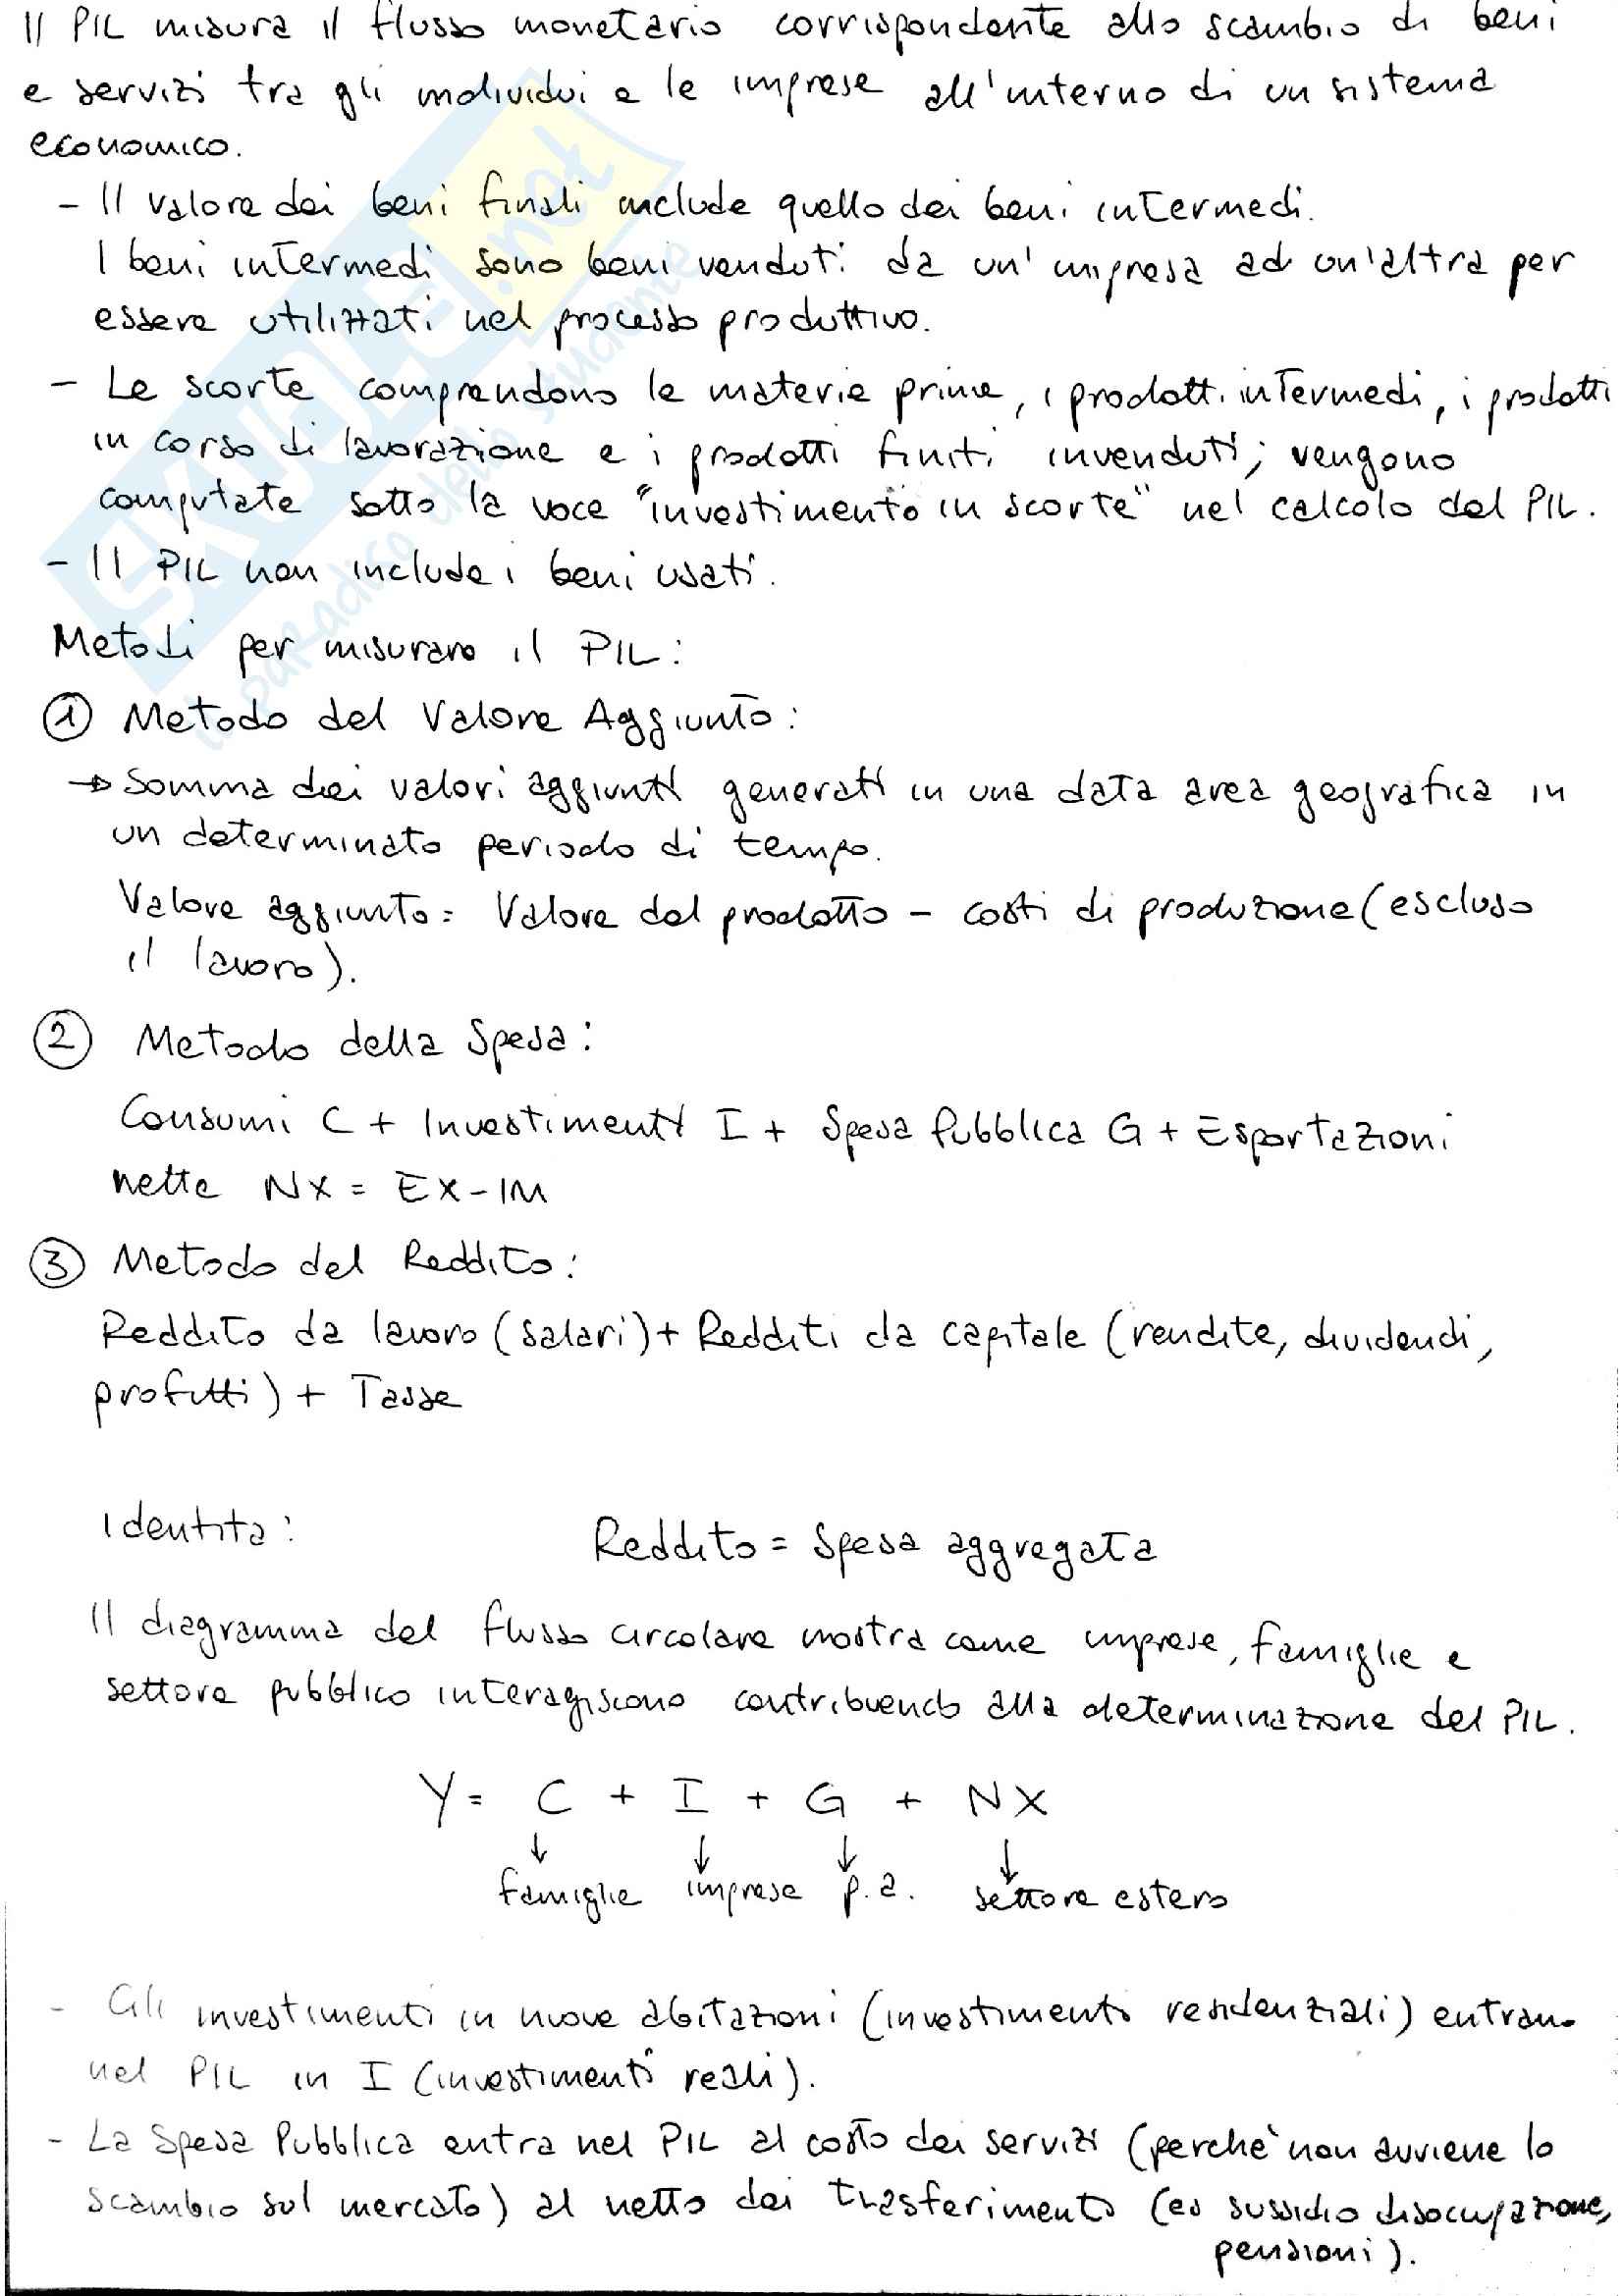 Il PIL misura il flusso monetario corrispondente allo scambio di beni
e servizi tra gli individui e le imprese all'interno di un sistema
economico.
- Il valore dei beni finali include quello dei beni intermedi.
I beni intermedi sono beni venduti da un'impresa ad un'altra per
essere utilizzati nel processo produttivo.
- Le scorte comprendono le materie prime, i prodotti intermedi, i prodotti
in corso di lavorazione e i prodotti finiti invenduti; vengono
computate sotto la voce "investimento in scorte" nel calcolo del PIL.
- Il PIL non include i beni usati.
Metodi per misurare il PIL:
① Metodo del Valore Aggiunto:
→ Somma dei valori aggiunti generati in una data area geografica in
un determinato periodo di tempo.
Valore aggiunto = Valore del prodotto - costi di produzione (escluso
il lavoro).
② Metodo della Spesa:
Consumi C + Investimenti I + Spesa Pubblica G + Esportazioni
nette NX = EX-IM
③ Metodo del Reddito:
Reddito da lavoro (salari) + Redditi da capitale (rendite, dividendi,
profitti) + Tasse
Identità: Reddito = Spesa aggregata
Il diagramma del flusso circolare mostra come imprese, famiglie e
settore pubblico interagiscono contribuendo alla determinazione del PIL.
Y = C + I + G + NX
↓ ↓ ↓ ↓
famiglie imprese p.a. settore estero
- Gli investimenti in nuove abitazioni (investimenti residenziali) entrano
nel PIL in I (investimenti reali).
- La Spesa Pubblica entra nel PIL al costo dei servizi (perchè non avviene lo
scambio sul mercato) al netto dei trasferimenti (es sussidio disoccupazione,
pensioni).
SKUOLA.net
il paradiso dello studente